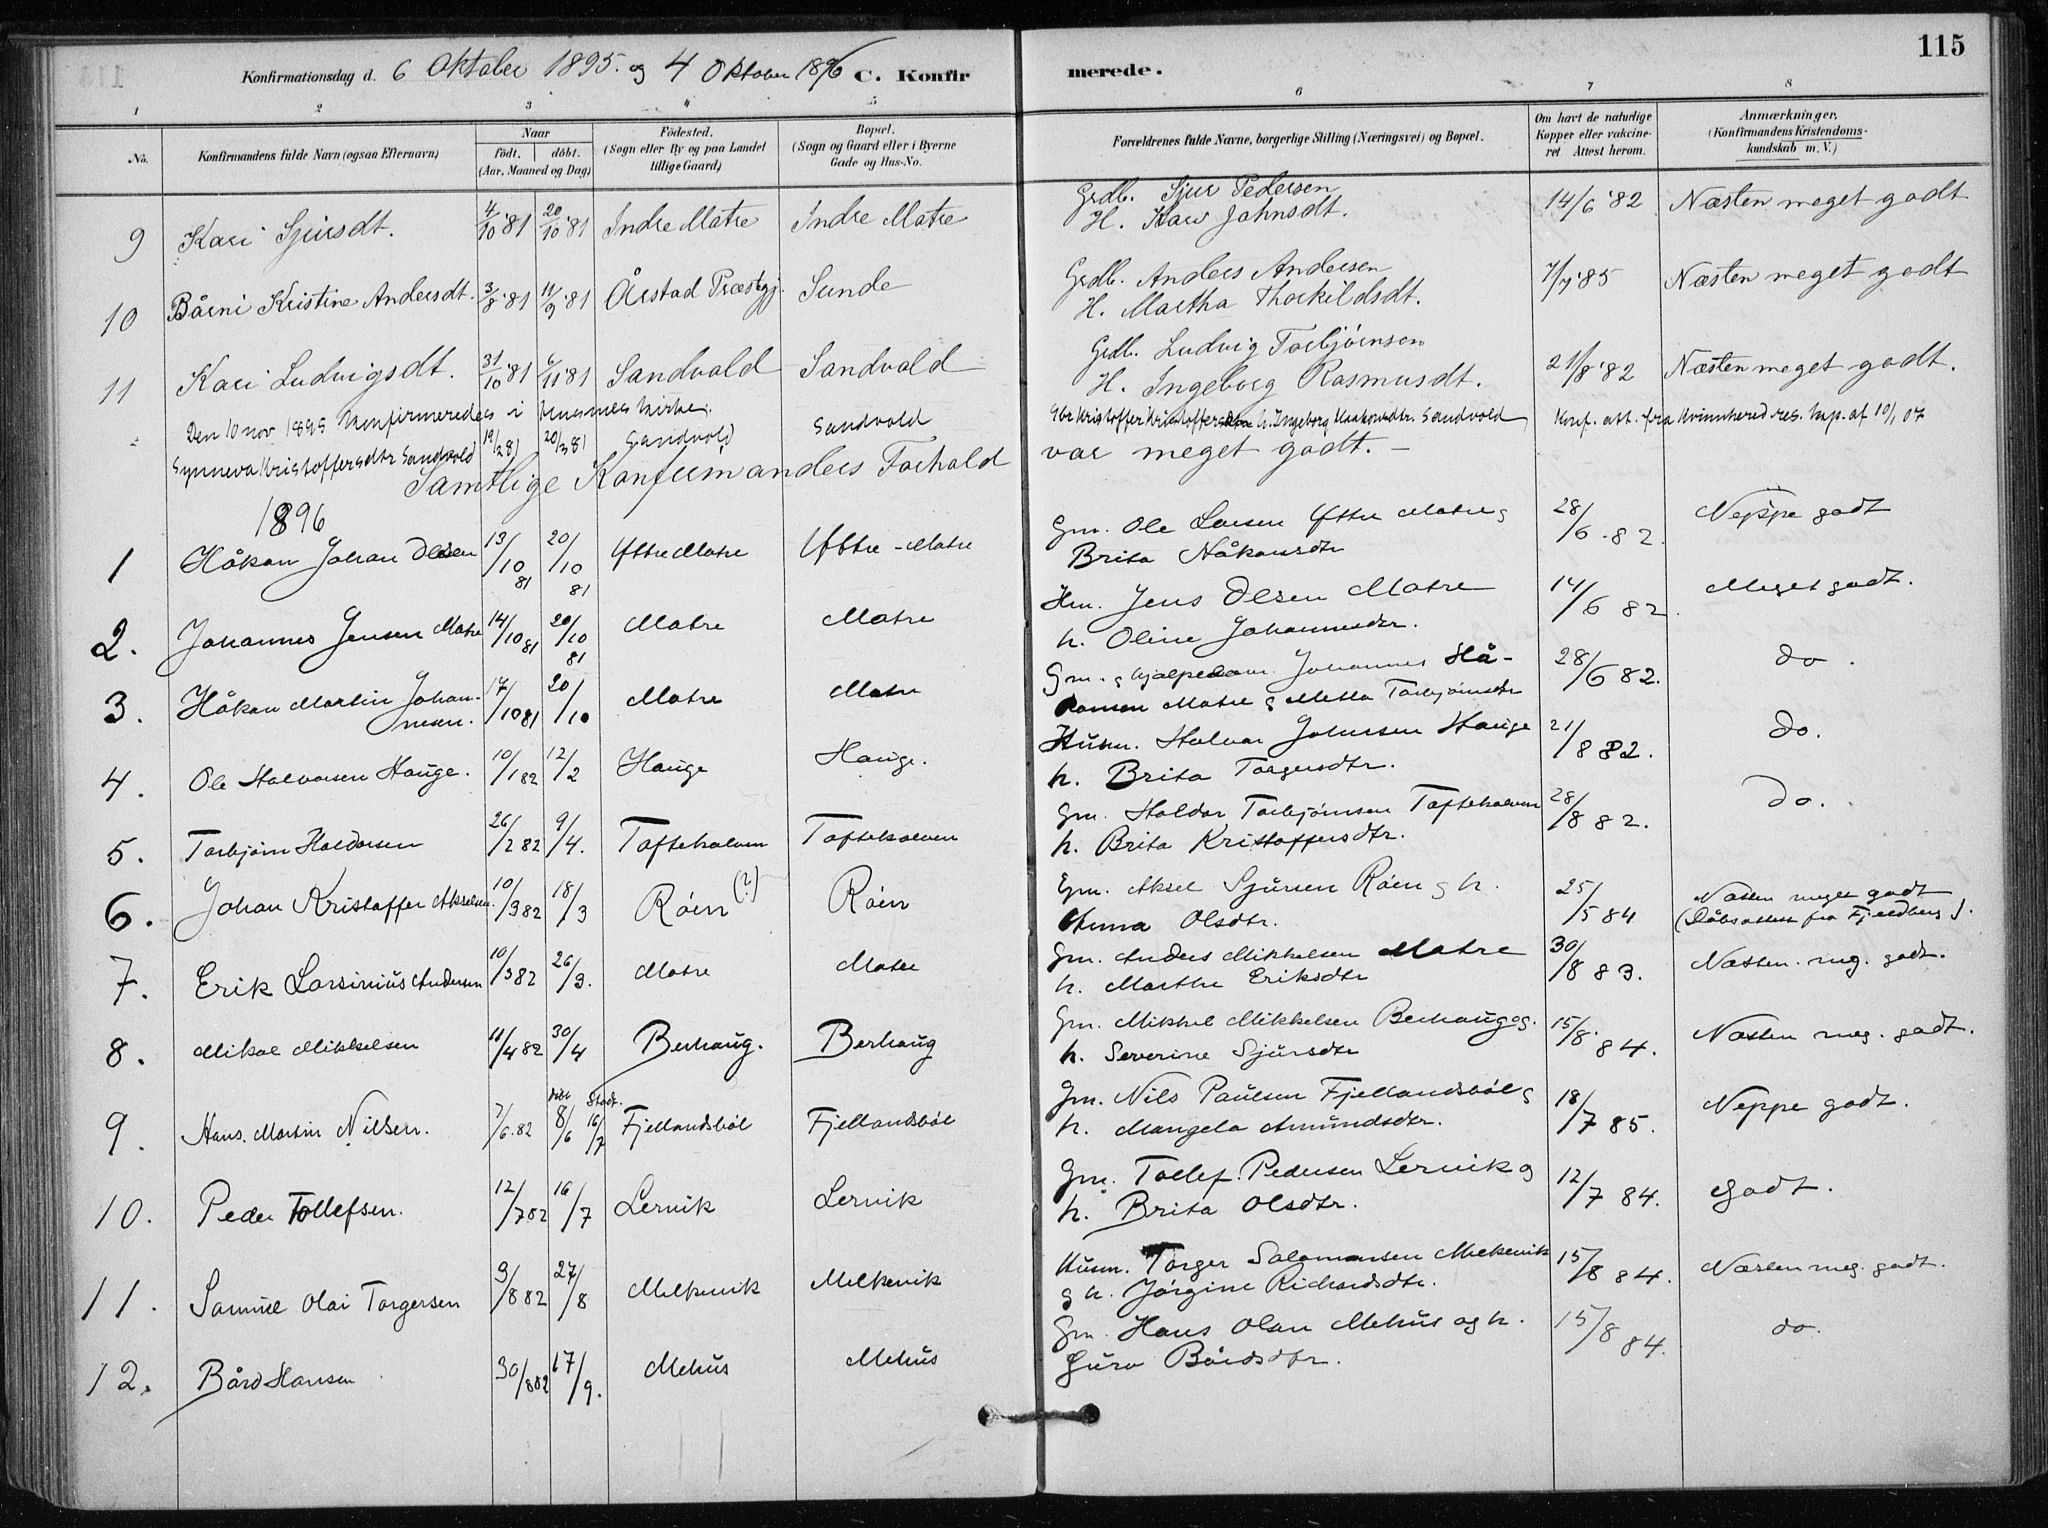 115
Konfirmationsdag d. 6 Oktober 1895. og 4 Oktober 1896 C. Konfir merede.
1 2 3 4 5 6 7 8
No. Konfirmandens fulde Navn (ogsaa Efternavn) Naar födt. döbt. (Aar, Maaned og Dag) Födested. (Sogn eller By og paa Landet tillige Gaard) Bopæl. (Sogn og Gaard eller i Byerne Gade og Hus-No. Forældrenes fulde Navne, borgerlige Stilling (Næringsvei) og Bopæl. Om havt de naturlige Kopper eller vakcineret Attest herom. Anmærkninger. (Konfirmandens Kristendomskundskab m. V.)
9 Kari Sjursdt. 4/10 '81 20/10 '81 Indre Matre Indre Matre Grdb. Sjur Pedersen 14/6 '82 Næsten meget godt
H. Kari Johnsdt.
10 Bårni Kristine Andersdt. 3/8 '81 11/9 '81 Årstad Præstegj. Sunde Grdb. Anders Andersen 7/7 '85 Næsten meget godt
H. Martha Thorkildsdt.
11 Kari Ludvigsdt. 31/10 '81 6/11 '81 Sandvold Sandvold Grdb. Ludvig Torbjörnsen 21/8 '82 Næsten meget godt.
H. Ingeborg Rasmusdt.
Den 10 nov 1895 konfirmeredes i Husnes kirke:
Synneva Kristoffersdtr Sandvold 19/2 81 20/3 81 Sandvold Sandvold Gbr Kristoffer Kristoffersen h. Ingeborg Haakonsdtr. Sandvold Konf. att. fra Kvinnhered res. kap. af 10/1 07
Samtlige Konfirmanders Forhold var meget godt. –
1896
1 Håkan Johan Olsen 13/10 81 20/10 81 Yttre Matre Yttre - Matre Gm. Ole Larsen Yttre Matre og 28/6. 82. Neppe godt
Brita Håkonsdtr
2. Johannes Jensen Matre 14/10 81 20/10 81 Matre Matre Hm. Jens Olsen Matre 14/6 82. Meget godt.
h. Oline Johannesdtr.
3. Håkan Martin Johannesen. 17/10 81 20/10 Matre Matre Gm. og hjælpelom. Johannes Hå- 28/6 82. do.
konsen Matre og Metta Torbjörnsdtr
4. Ole Halvorsen Hauge. 10/1 82 12/2 Hauge Hauge. Husm. Halvor Johnsen Hauge 21/8 82. do.
h. Brita Torgersdtr.
5. Torbjörn Haldorsen 26/2 82 9/4. Toftekalven Toftekalven Gm. Haldor Torbjörnsen Toftekalven 28/8 82. do.
h. Brita Kristoffersdtr.
6. Johan Kristoffer Akselsen. 10/3 82 18/3 Röen (?) Röen Gm. Aksel Sjursen Röen og h. 25/5 84 Næsten meget godt
Anna Olsdtr. (Dåbsattest fra Fjeldberg).
7. Erik Larsinius Andersen 10/3 82 26/3. Matre Matre Gm. Anders Mikkelsen Matre 30/8 83. Næsten. meg. godt.
h. Marthe Eriksdtr
8. Mikal Mikkelsen 11/4 82 30/4 Berhaug. Berhaug Gm. Mikkel Mikkelsen Berhaug og. 15/8. 84. Næsten meg. godt.
h. Severine Sjursdtr
9. Hans. Martin Nilsen. 7/6. 82 döbt 8/6 Stadf. 16/7 Fjellandsböl Fjellandsböl Gm. Nils Paulsen Fjellandsböl og 18/7 85. Neppe godt.
h. Mangela Amundsdtr.
10. Peder Tollefsen. 12/7 82 16/7 Lervik Lervik Gm. Tollef. Pedersen Lervik og 12/7 84. Godt.
h. Brita Olsdtr.
11. Samuel Olai Torgersen 3/8 82 27/8 Melkevik Melkevik Husm. Torger Salamonsen Melkevik 15/8 84. Næsten meg. godt.
og h. Jörgine Richardsdtr.
12. Bård Hansen 30/8 82 17/9. Mehus Mehus Gm. Hans Olsen Mehus og h. 15/8 84. do.
Guro Bårdsdtr.